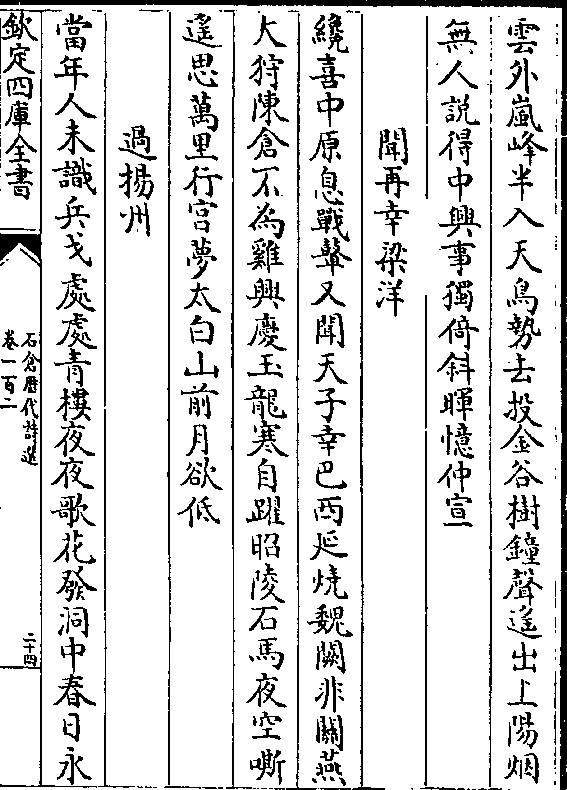 雲外嵐峰半入天鳥勢去投金谷樹鐘聲遙出上陽烟
無人説得中興事獨倚斜暉憶仲宣
聞再幸梁洋
纔喜中原息戰鼙又聞天子幸巴西延燒魏闕非關燕
大狩陳倉不為雞興慶玉龍寒自躍昭陵石馬夜空嘶
遙思萬里行宫夢太白山前月欲低
過揚州
當年人未識兵戈處處青樓夜夜歌花發洞中春日永
欽定四庫全書
石倉歴代詩選
卷一百二
二十四